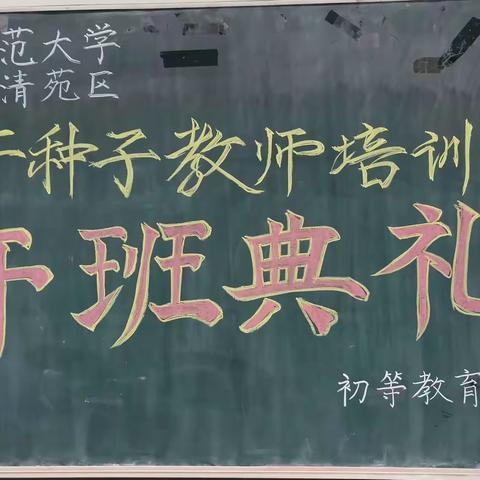 范大学
清苑区
种子教师培训
开班典礼
初等教育